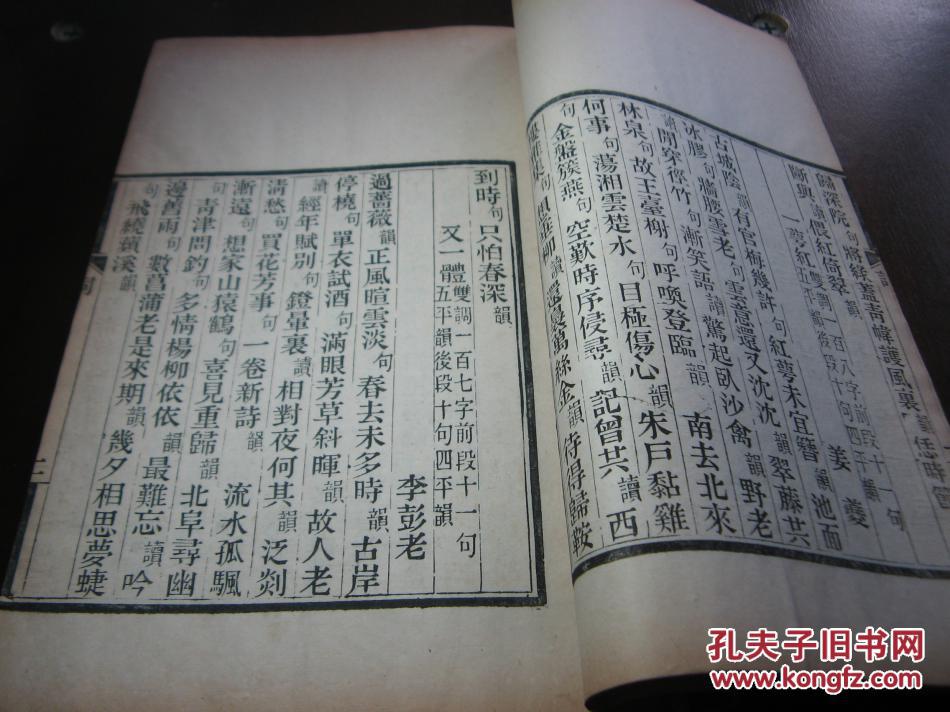 斷與
一萼紅雙調一百八字前段十一句
五平韻後段十句四平韻
姜夔
古城陰讀有官梅幾許句紅萼未宜簪韻池面
冰膠句牆腰雪老句雲意還又沈沈韻翠藤共
讀閒穿徑竹句漸笑語讀驚起臥沙禽韻野老
林泉句故王臺榭句呼喚登臨韻 南去北來
何事句蕩湘雲楚水句目極傷心韻朱戶黏雞
句金盤簇燕句空歎時序侵尋韻記曾共讀西
還裊萬絲金韻待得歸鞍
到時句只怕春深韻
又一體雙調一百七字前段十一句
五平韻後段十句四平韻
李彭老
過薔薇韻正風暄雲淡句春去未多時韻古岸
停橈句單衣試酒句滿眼芳草斜暉韻故人老
讀經年賦別句鐙暈裏讀相對夜何其韻泛剡
清愁句買花芳事句一卷新詩韻 流水孤颿
漸遠句想家山猿鶴句喜見重歸韻北阜尋幽
句青津問釣句多情楊柳依依韻最難忘讀吟
邊舊雨句數菖蒲老是來期韻幾夕相思夢蜨
句飛繞蘋溪韻
二
孔夫子旧书网
www.kongfz.com